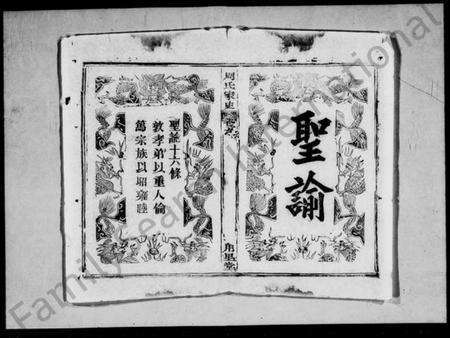 聖諭
周氏家史
聖諭十六條
敦孝弟以重人倫
萬宗族以昭雍睦
FamilySearch International